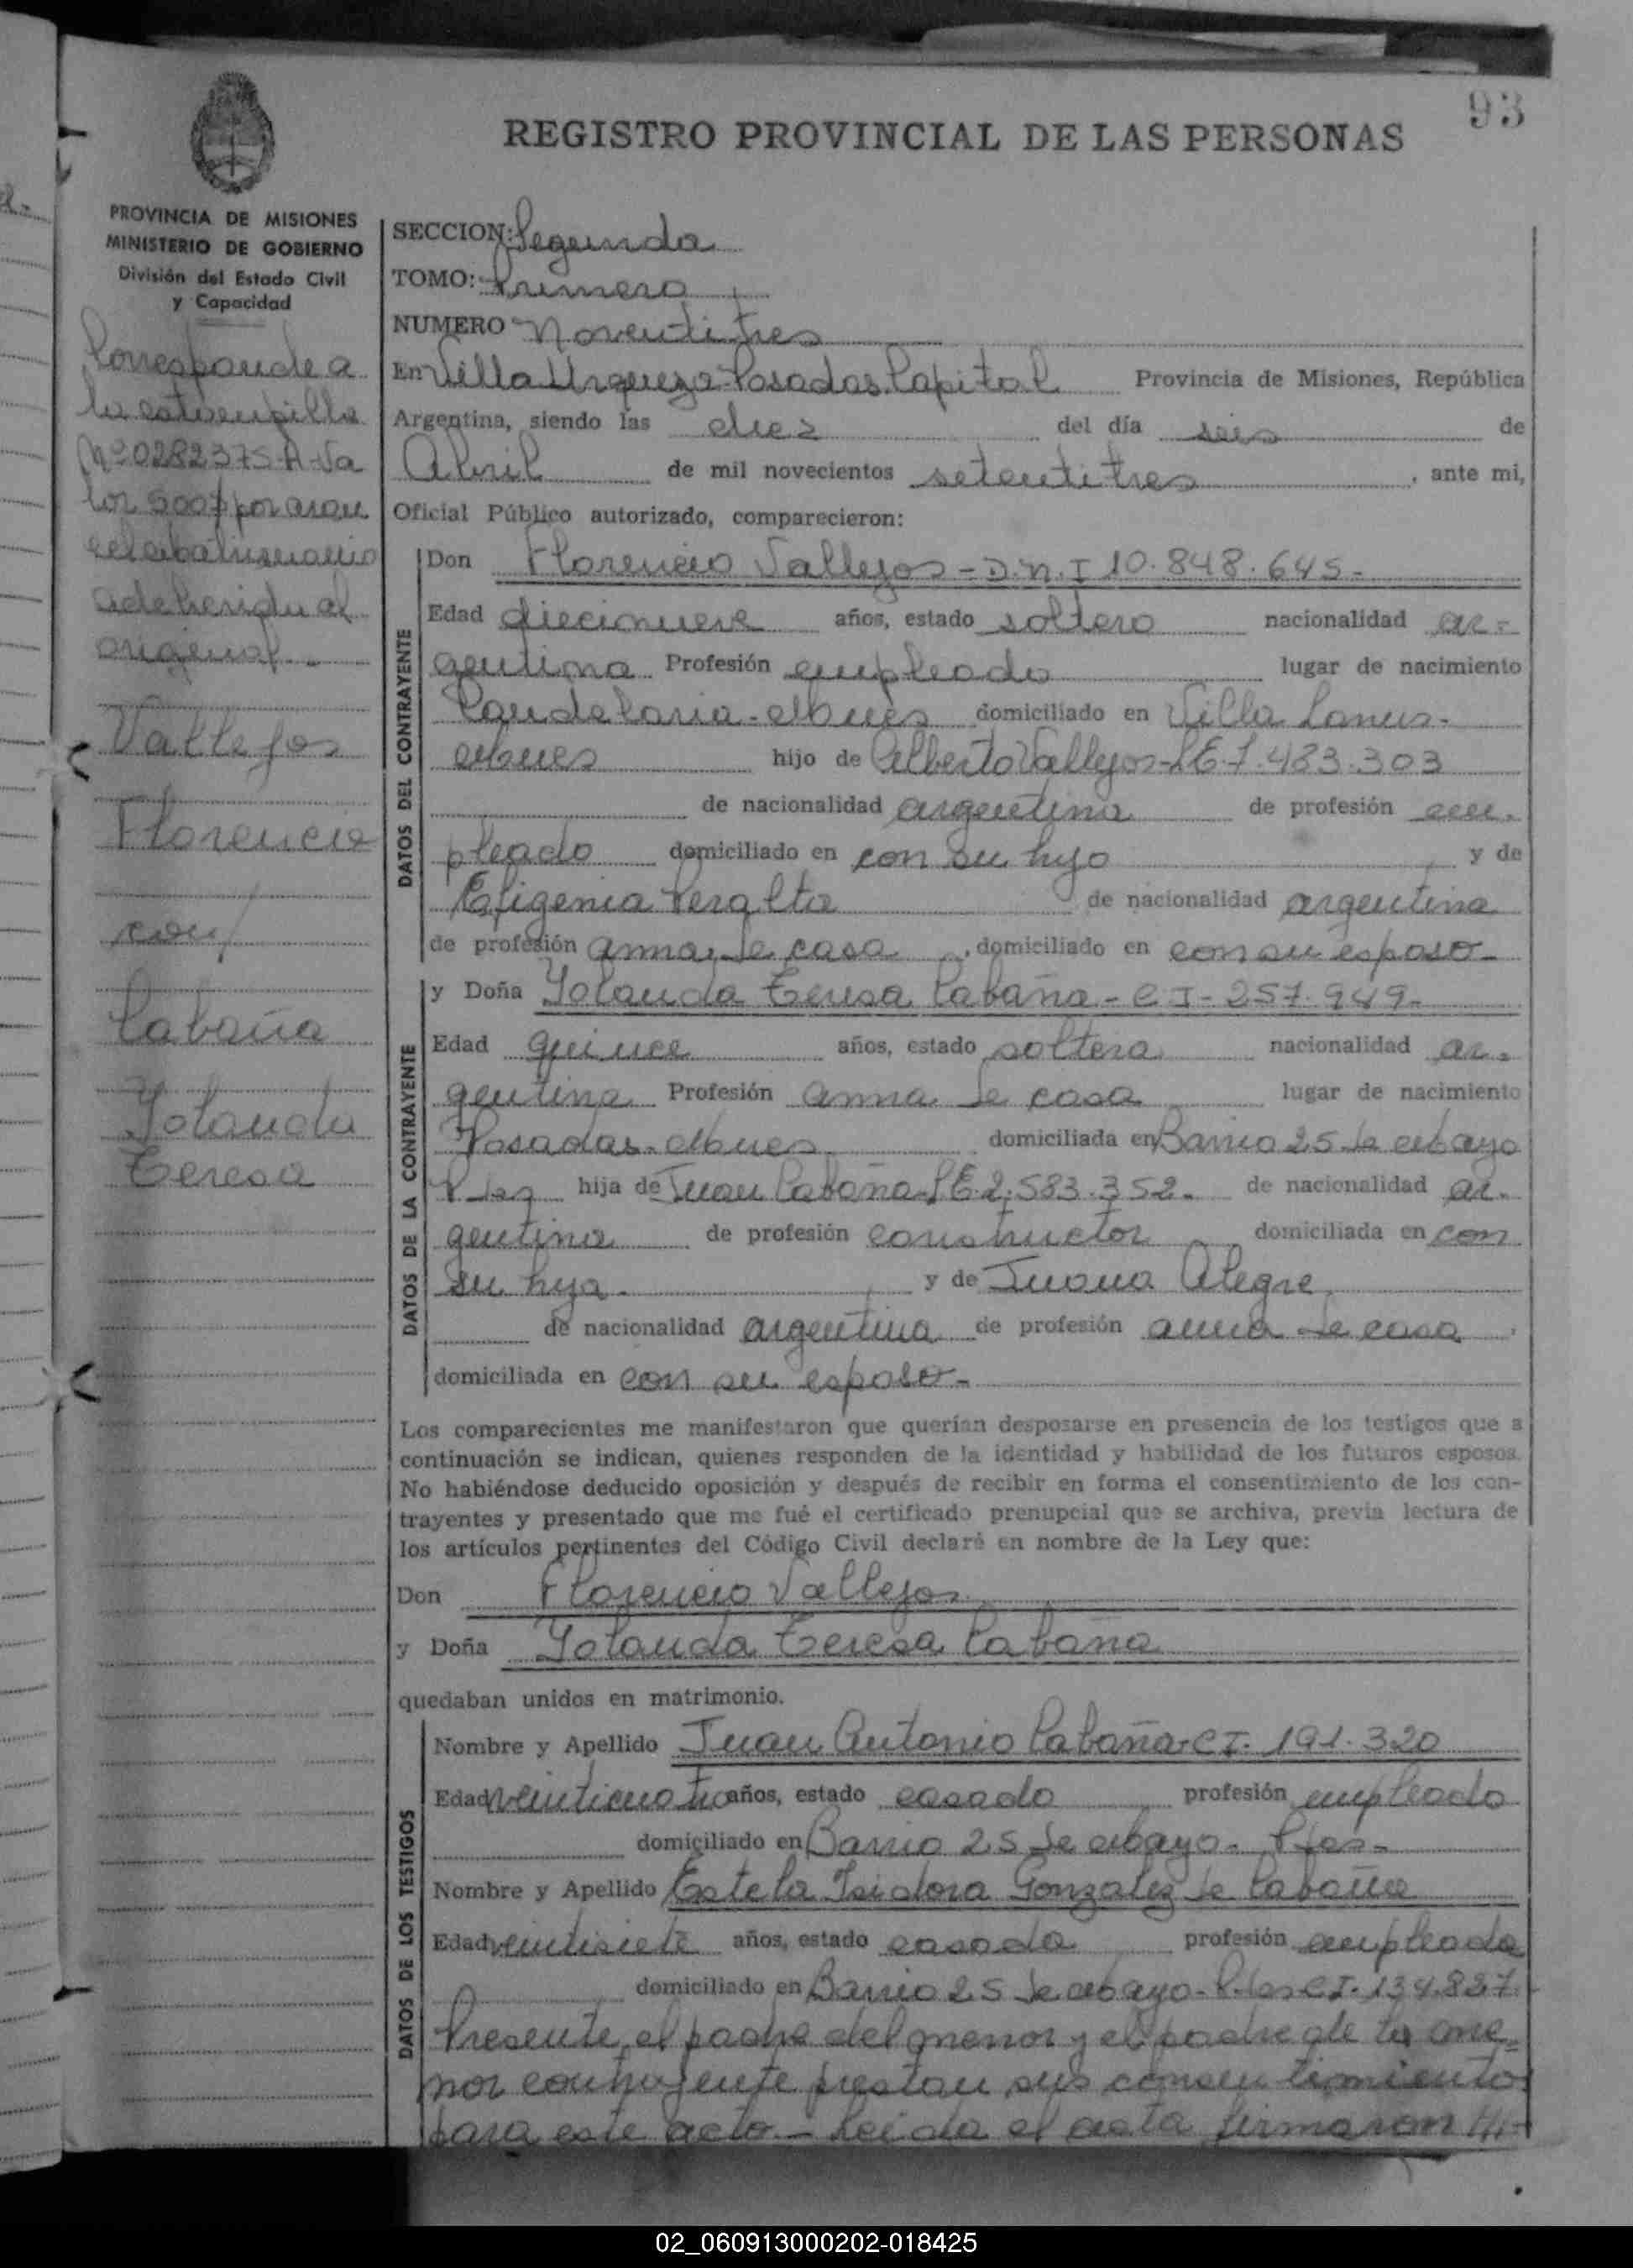 93
REGISTRO PROVINCIAL DE LAS PERSONAS
PROVINCIA DE MISIONES
MINISTERIO DE GOBIERNO
División del Estado Civil
y Capacidad
Corresponde a
la estampilla
Nº 0282375-A-Va
lor 500$ por aran
cel
adherida al
original.-
Vallejos
Florencio
con/
Cabaña
Yolanda
Teresa
SECCION: Segunda
TOMO: Primero
NUMERO Noventitres
En Villa Urquiza-Posadas Capital Provincia de Misiones, República
Argentina, siendo las diez del día seis de
Abril de mil novecientos setentitres, ante mi,
Oficial Público autorizado, comparecieron:
DATOS DEL CONTRAYENTE
Don Florencio Vallejos - D.N.I 10.848.645-
Edad diecinueve años, estado soltero nacionalidad ar-
gentina Profesión empleado lugar de nacimiento
Candelaria-Mnes domiciliado en Villa Lanus-
Mnes hijo de Alberto Vallejos-LE-7.483.303
de nacionalidad argentina de profesión em-
pleado domiciliado en con su hijo y de
Efigenia Peralta de nacionalidad argentina
de profesión anma de casa, domiciliado en con su esposo-
DATOS DE LA CONTRAYENTE
y Doña Yolanda Teresa Cabaña - C I - 257.949-
Edad quince años, estado soltera nacionalidad ar-
gentina Profesión anma de casa lugar de nacimiento
Posadas-Mnes domiciliada en Barrio 25 de Mayo
P.das hija de Juan Cabaña-LE.2.583.352- de nacionalidad ar-
gentina de profesión constructor domiciliada en con
su hija. y de Juana Alegre
de nacionalidad argentina de profesión anma de casa,
domiciliada en con su esposo-
Los comparecientes me manifestaron que querían desposarse en presencia de los testigos que a
continuación se indican, quienes responden de la identidad y habilidad de los futuros esposos.
No habiéndose deducido oposición y después de recibir en forma el consentimiento de los con-
trayentes y presentado que me fué el certificado prenupcial que se archiva, previa lectura de
los artículos pertinentes del Código Civil declaré en nombre de la Ley que:
Don Florencio Vallejos
y Doña Yolanda Teresa Cabaña
quedaban unidos en matrimonio.
DATOS DE LOS TESTIGOS
Nombre y Apellido Juan Antonio Cabaña-C I- 191.320
Edad años, estado casado profesión empleado
domiciliado en Barrio 25 de Mayo- P.das-
Nombre y Apellido Estela Isidora Gonzalez de Cabaña
Edad veintisiete años, estado casada profesión empleada
domiciliado en Barrio 25 de Mayo-P.das-C I-134.827.
Presente el padre del menor y el padre de la me-
nor contrayente prestan sus consentimientos
para este acto.- Leida el acta firmaron ///-
02_060913000202-018425